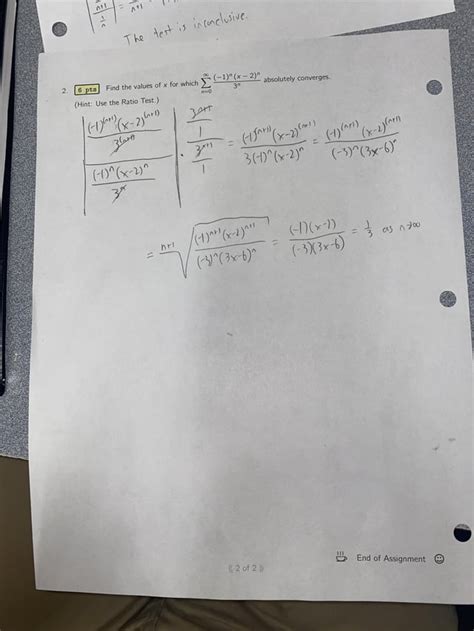 The test is inconclusive.
2. 6 pts Find the values of x for which ∑_{n=0}^{∞} (-1)^n (x-2)^n / 3^n absolutely converges.
(Hint: Use the Ratio Test.)
| ((-1)^{(n+1)} (x-2)^{(n+1)} / 3^{(n+1)}) / ((-1)^n (x-2)^n / 3^n) | · (3^{n+1} / 1) / (3^{n+1} / 1) = (-1)^{(n+1)} (x-2)^{(n+1)} / 3(-1)^n (x-2)^n = (-1)^{(n+1)} (x-2)^{(n+1)} / (-3)^n (3x-6)^n
= ^{n+1}√( (-1)^{n+1} (x-2)^{n+1} / (-3)^n (3x-6)^n ) = (-1)(x-2) / (-3)(3x-6) = 1/3 as n→∞
End of Assignment
2 of 2